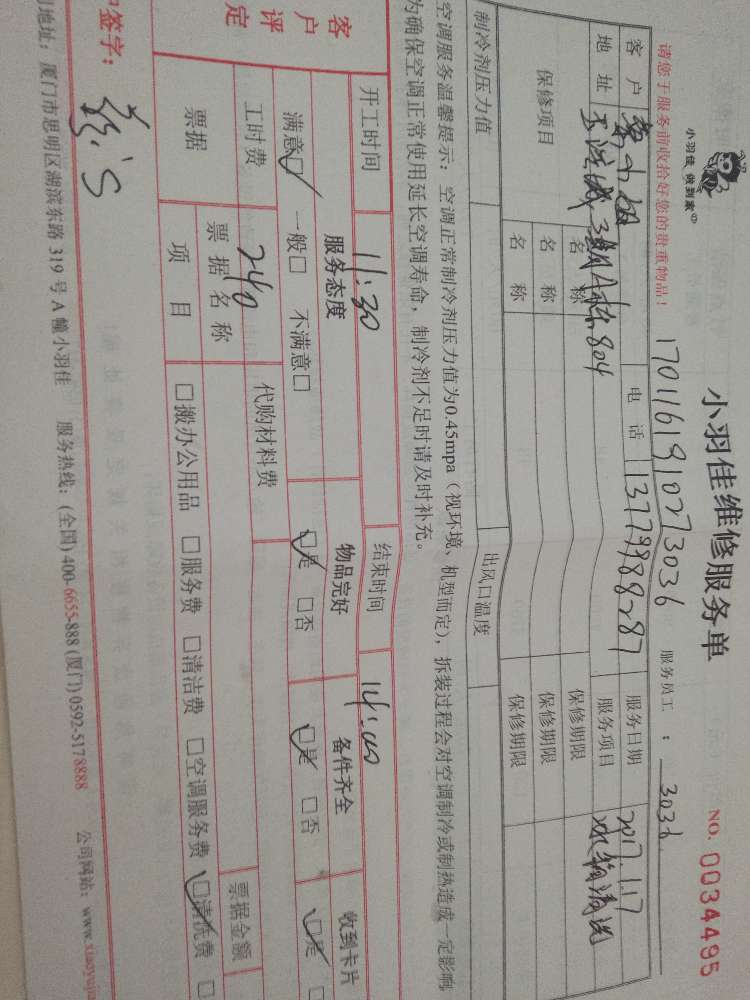 小羽佳 做到家
小羽佳维修服务单
NO. 0034495
请您于服务前收拾好您的贵重物品！
1701161910273036
服务员工： 3036
客户 小姐 电话 13779988287 服务日期 2017.1.17
地址 804 服务项目 水箱清洗
保修项目 名称 保修期限
名称 保修期限
名称 保修期限
制冷剂压力值 出风口温度
空调服务温馨提示：空调正常制冷剂压力值为0.45mpa（视环境、机型而定），拆装过程会对空调制冷或制热造成一定影响
为确保空调正常使用延长空调寿命，制冷剂不足时请及时补充。
客户评定
开工时间 11:30 结束时间 14:00
服务态度 物品完好 备件齐全 收到卡片
满意□ 一般□ 不满意□ □是 □否 □是 □否 □是
工时费 240 代购材料费
票据 票据名称 票据金额
项目 □搬办公用品 □服务费 □清洁费 □空调服务费 □清洗费 □
户签字：
司地址：厦门市思明区湖滨东路 319 号 A 幢小羽佳 服务热线：(全国) 400-6655-888 (厦门) 0592-5178888 公司网站：www.xiaoyuji